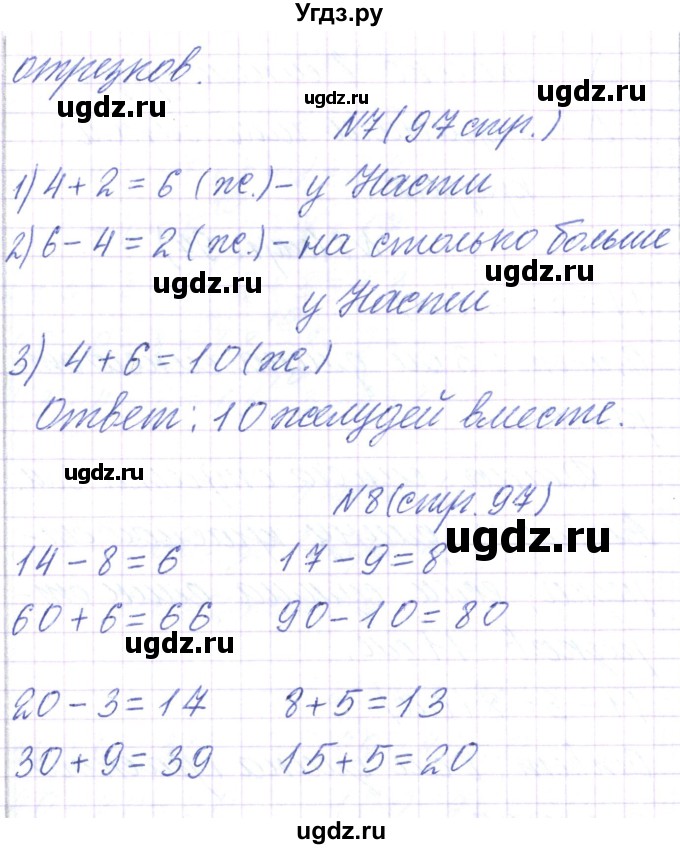 Угдз.ру
отрезков.
ugdz.ru ugdz.ru ugdz.ru
№7 (97 стр.)
1) 4 + 2 = 6 (ж.) – у Насти
2) 6 – 4 = 2 (ж.) – на столько больше
ugdz.ru ugdz.ru
у Насти
3) 4 + 6 = 10 (ж.)
ugdz.ru
Ответ: 10 желудей вместе.
ugdz.ru
№8 (стр. 97)
ugdz.ru
14 – 8 = 6 17 – 9 = 8
60 + 6 = 66 90 – 10 = 80
ugdz.ru
20 – 3 = 17 8 + 5 = 13
30 + 9 = 39 15 + 5 = 20
ugdz.ru ugdz.ru
ugdz.ru